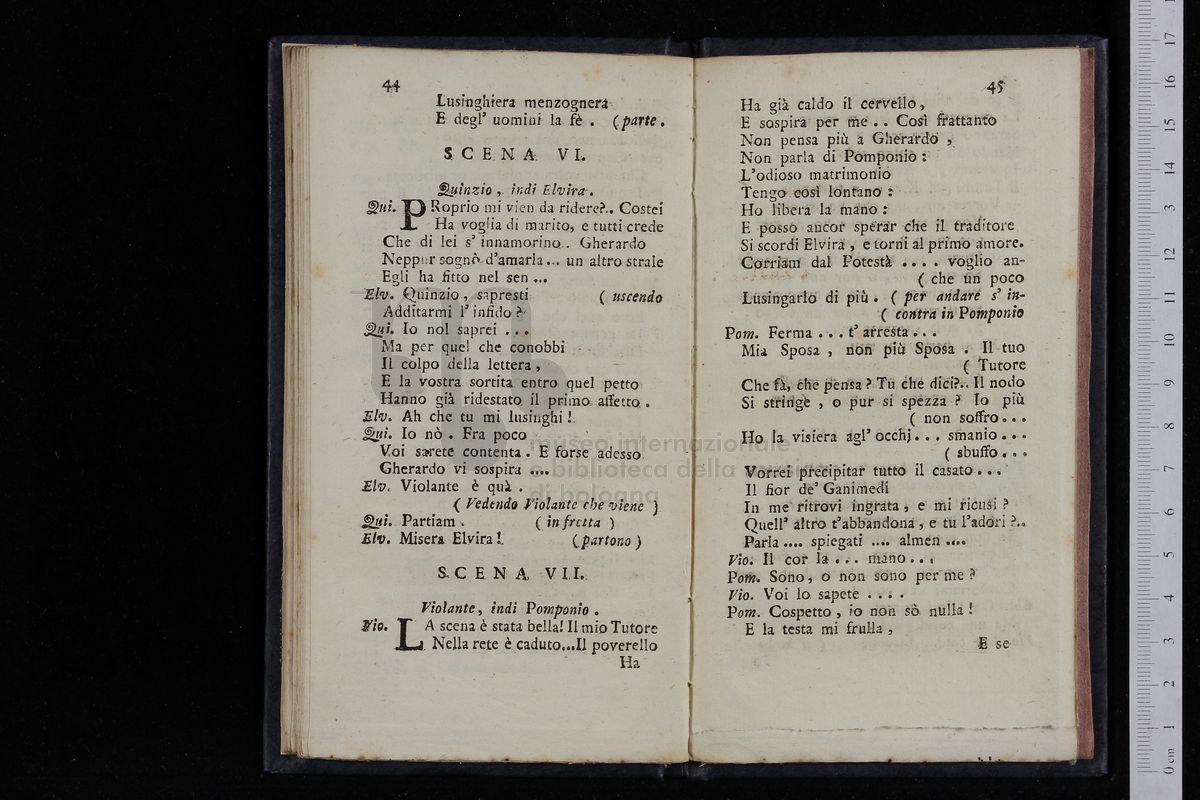 44
Lusinghiera menzognera
E degl' uomini la fè . (parte.
SCENA VI.
Quinzio, indi Elvira.
Qui. PRoprio mi vien da ridere?.. Costei
Ha voglia di marito, e tutti crede
Che di lei s' innamorino.. Gherardo
Neppur sognò d'amarla... un altro strale
Egli ha fitto nel sen ...
Elv. Quinzio, sapresti ( uscendo
Additarmi l' infido ?
Qui. Io nol saprei ...
Ma per quel che conobbi
Il colpo della lettera,
E la vostra sortita entro quel petto
Hanno già ridestato il primo affetto.
Elv. Ah che tu mi lusinghi !
Qui. Io nò . Fra poco
Voi sarete contenta . E forse adesso
Gherardo vi sospira ....
Elv. Violante è quà .
( Vedendo Violante che viene )
Qui. Partiam . ( in fretta )
Elv. Misera Elvira! (partono)
SCENA VII.
Violante, indi Pomponio .
Vio. LA scena è stata bella! Il mio Tutore
Nella rete è caduto...Il poverello
Ha
45
Ha già caldo il cervello,
E sospira per me .. Così frattanto
Non pensa più a Gherardo ,
Non parla di Pomponio :
L'odioso matrimonio
Tengo così lontano :
Ho libera la mano :
E posso ancor sperar che il traditore
Si scordi Elvira , e torni al primo amore.
Corriam dal Potestà .... voglio an-
( che un poco
Lusingarlo di più . ( per andare s' in-
( contra in Pomponio
Pom. Ferma ... t' arresta ...
Mia Sposa , non più Sposa . Il tuo
( Tutore
Che fà, che pensa ? Tu che dici?.. Il nodo
Si stringe , o pur si spezza ? Io più
( non soffro...
Ho la visiera agl' occhj... smanio ...
( sbuffo ...
Vorrei precipitar tutto il casato ...
Il fior de' Ganimedi
In me ritrovi ingrata , e mi ricusi ?
Quell' altro t'abbandona , e tu l'adori ?..
Parla .... spiegati .... almen ....
Vio. Il cor la ... mano ...
Pom. Sono, o non sono per me ?
Vio. Voi lo sapete ....
Pom. Cospetto , io non sò nulla !
E la testa mi frulla ,
E se
museo internazionale
biblioteca della musica
di bologna
0 cm 1 2 3 4 5 6 7 8 9 10 11 12 13 14 15 16 17